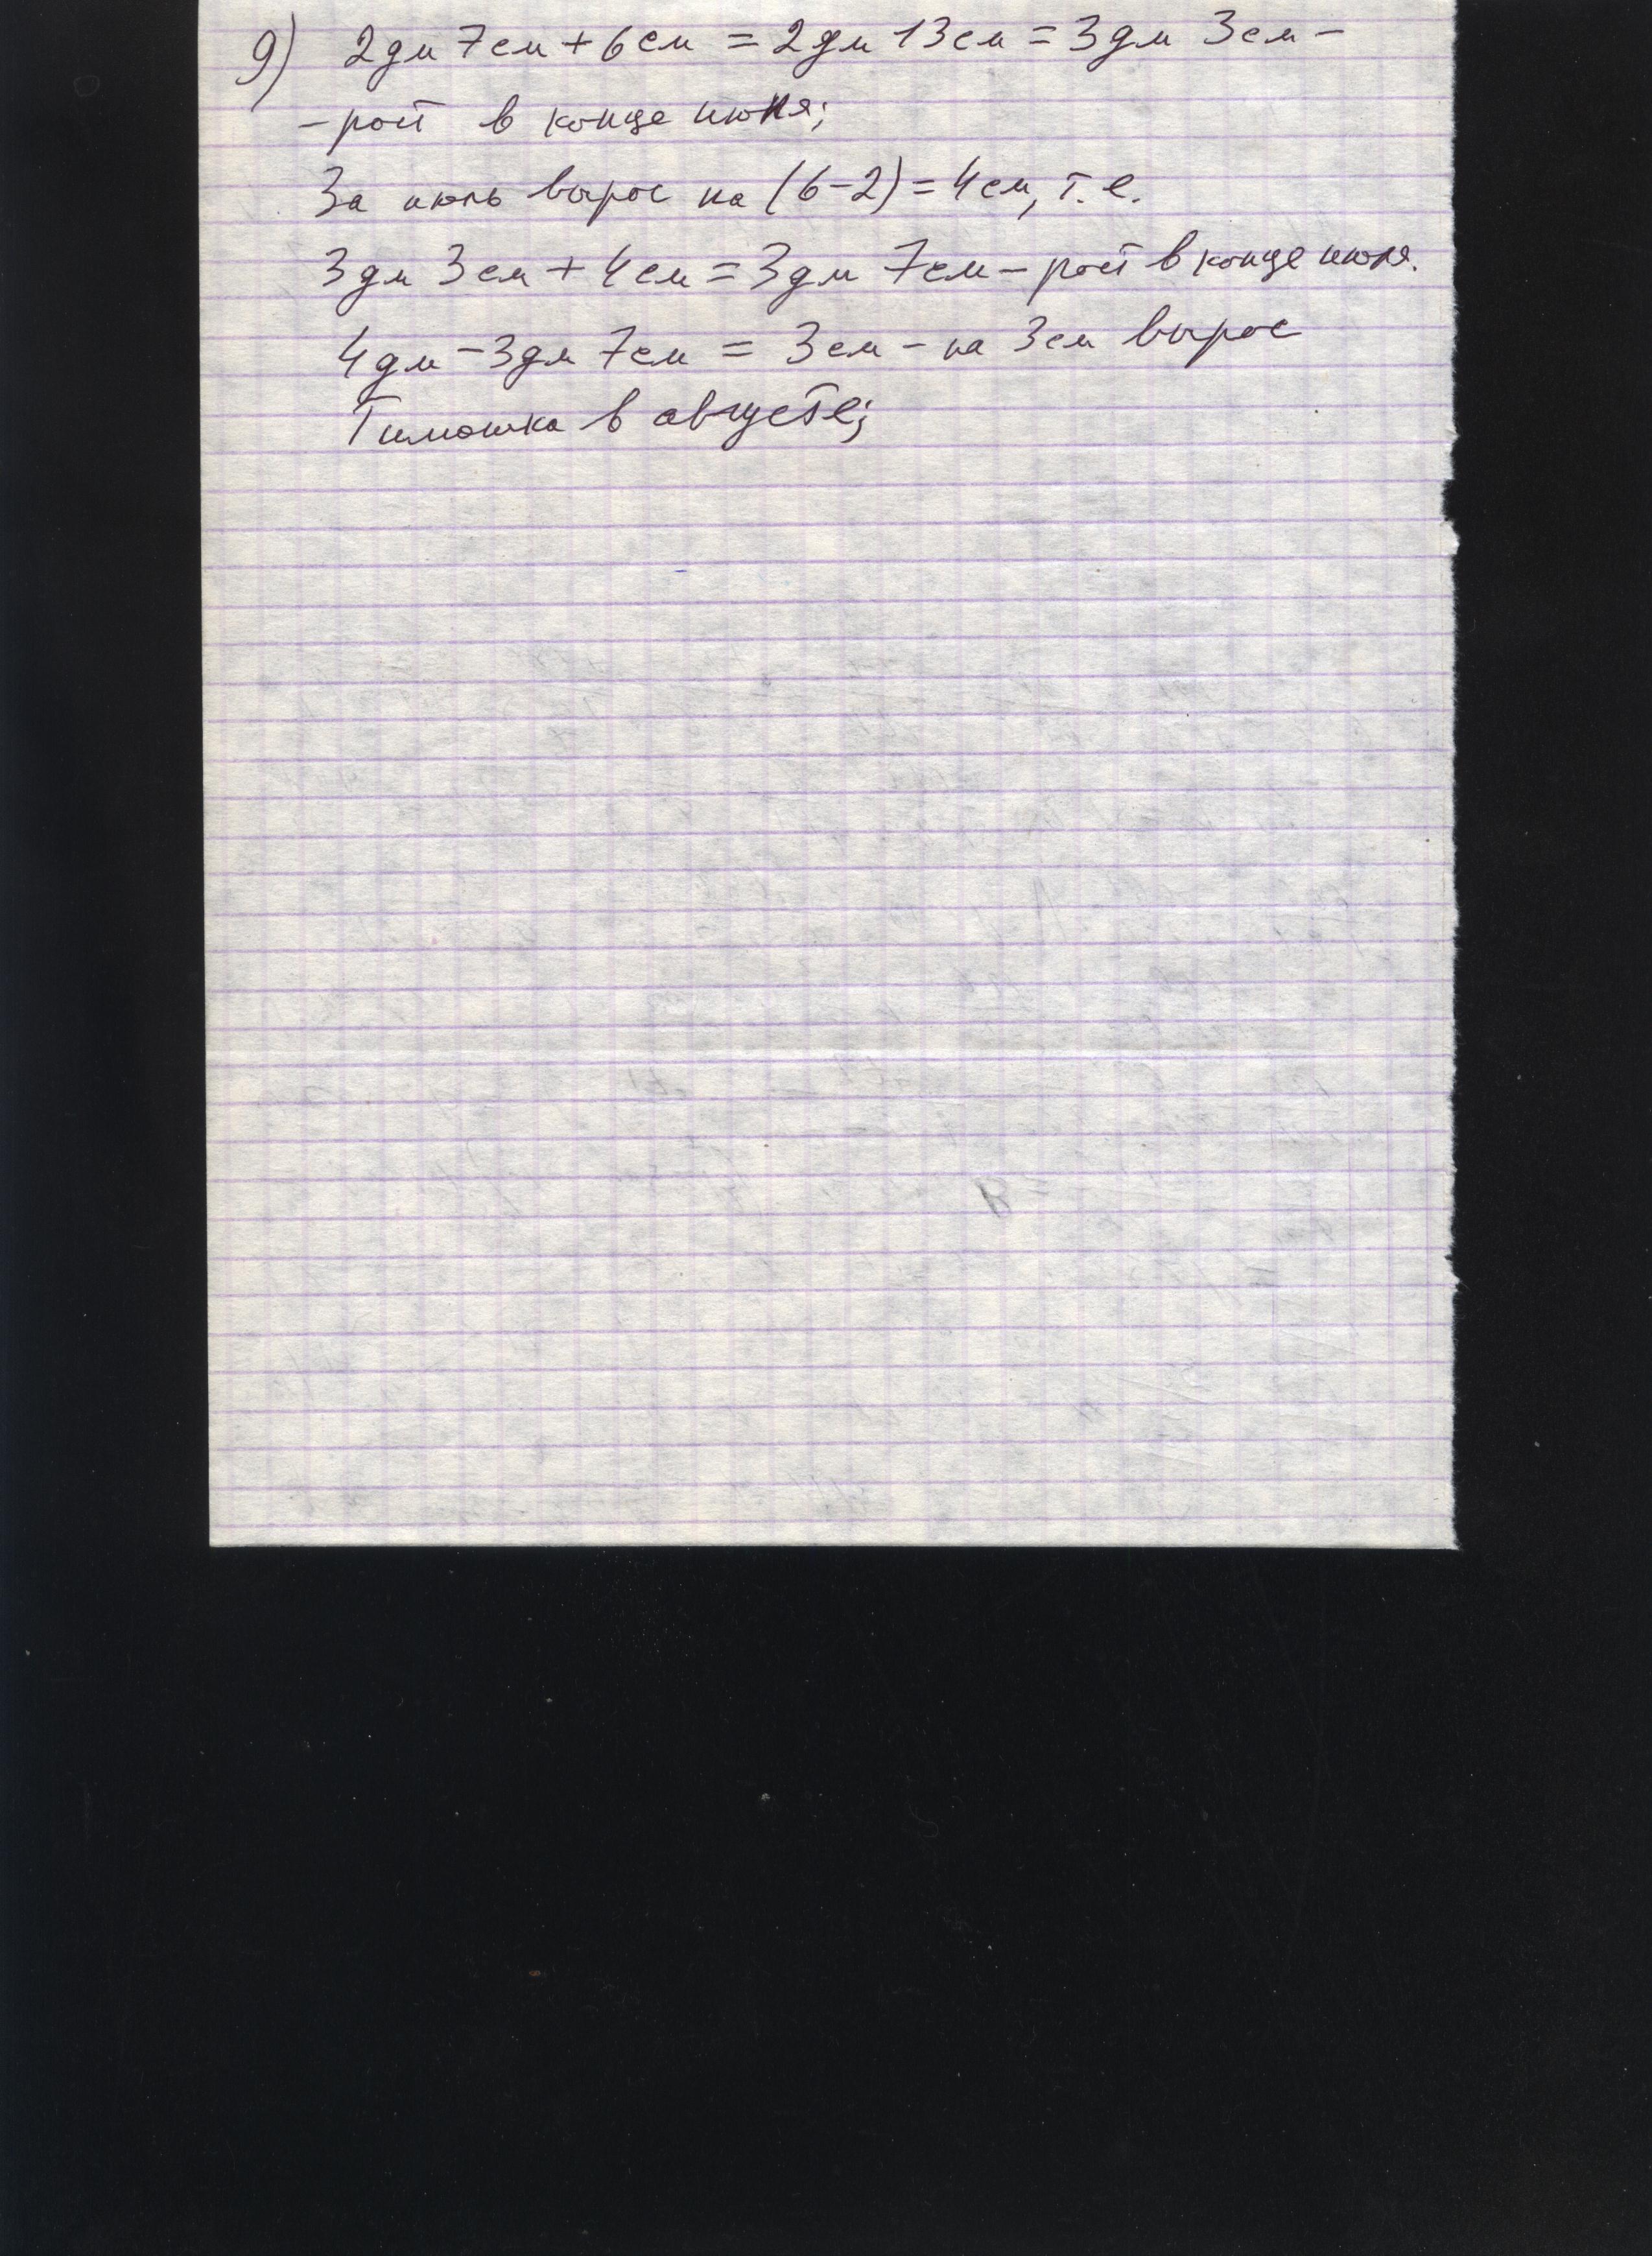 9) 2дм 7см + 6см = 2дм 13см = 3дм 3см -
- рост в конце июня;
За июль вырос на (6-2) = 4см, т. е.
3дм 3см + 4см = 3дм 7см - рост в конце июля.
4дм - 3дм 7см = 3см - на 3см вырос
Тимошка в августе;